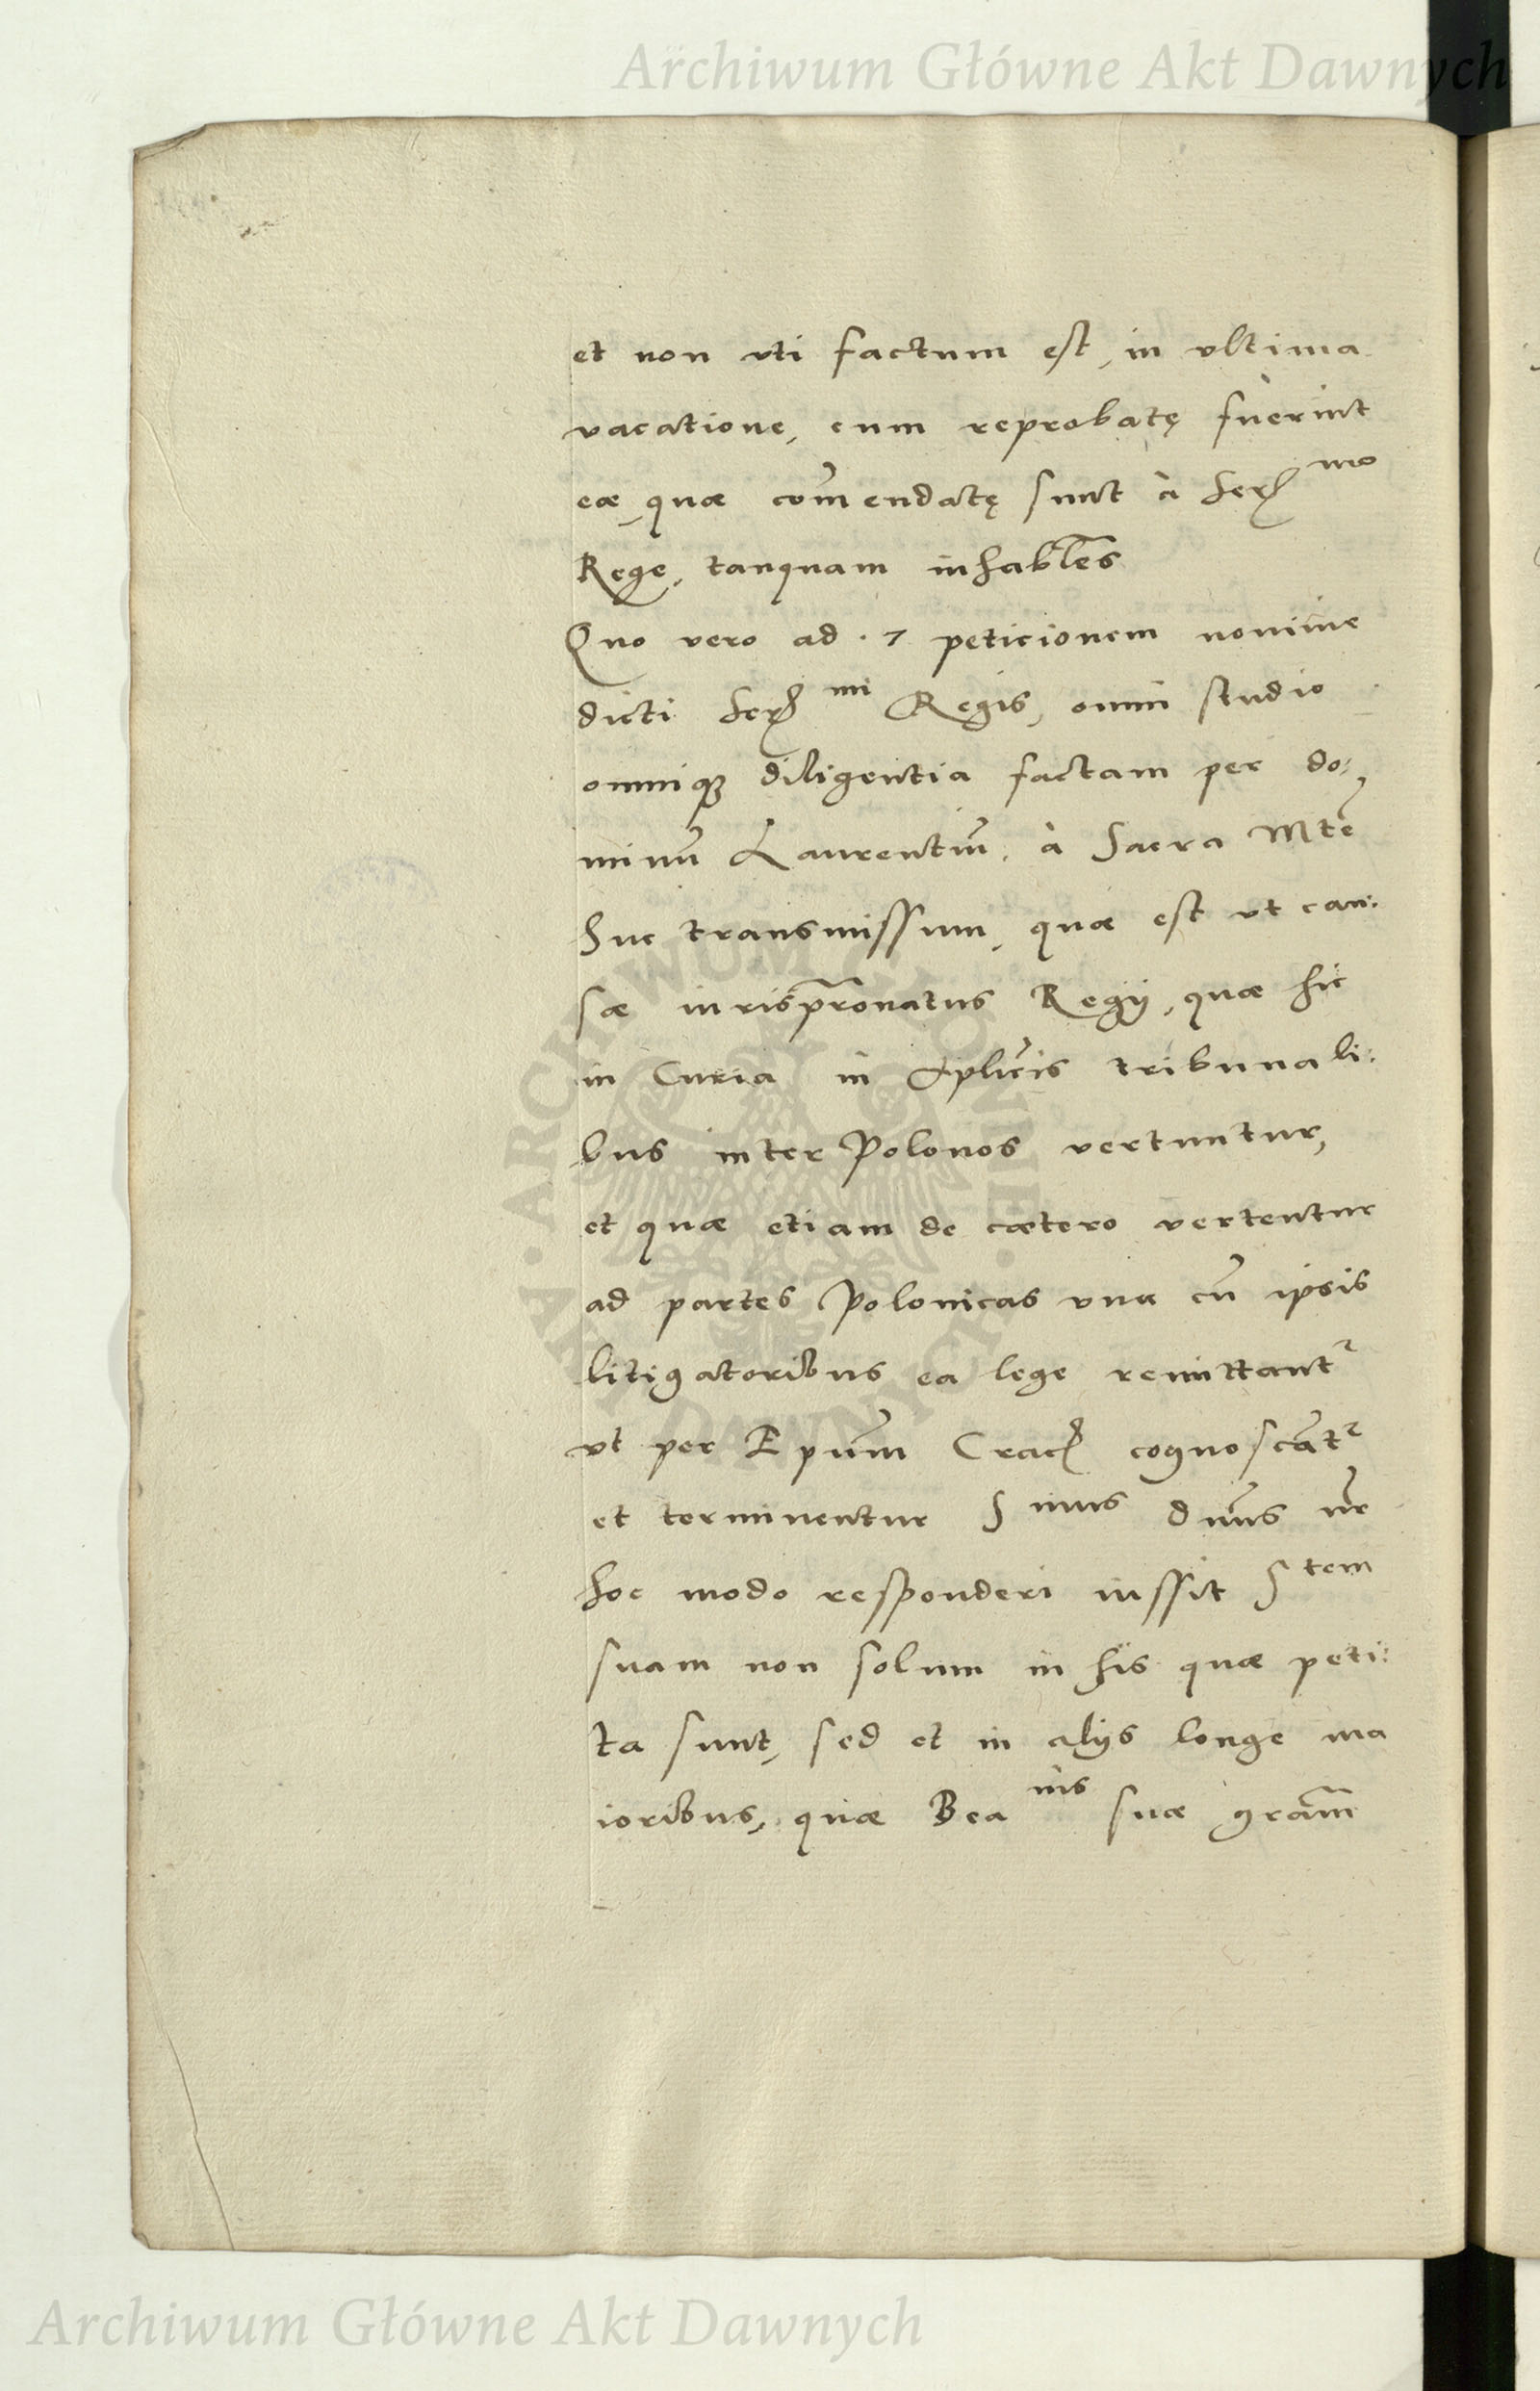 Archiwum Główne Akt Dawnych
et non uti factum est, in ultima
vacatione, cum reprobatę fuerint
eæ, quæ com̄endatę sunt à Ser^mo
Rege, tanquam inhabl̄es
Quo vero ad .7 peticionem nomine
dicti Ser^mi Regis, omni studio
omniq₃ diligentia factam per do:
minū Laurentiū, à Sacra Mte
huc transmissum, quæ est ut cau:
sæ iurisp̄ronatus Regij, quæ hic
in Curia in Apl̄icis tribunali:
bus inter Polonos vertuntur,
et quæ etiam de cætero vertentur
ad partes Polonicas una cū ipsis
litigatoribus ea lege remittant^r
ut per Ep̄um Crac cognoscāt^r
et terminentur S^mus dn̄us nr̄
hoc modo responderi iussit S^tem
suam non solum in his quæ peti:
ta sunt, sed et in alijs longe ma
ioribus, quæ Bea^nis suæ gram̄
ARCHIWUM GŁÓWNE AKT DAWNYCH
Archiwum Główne Akt Dawnych